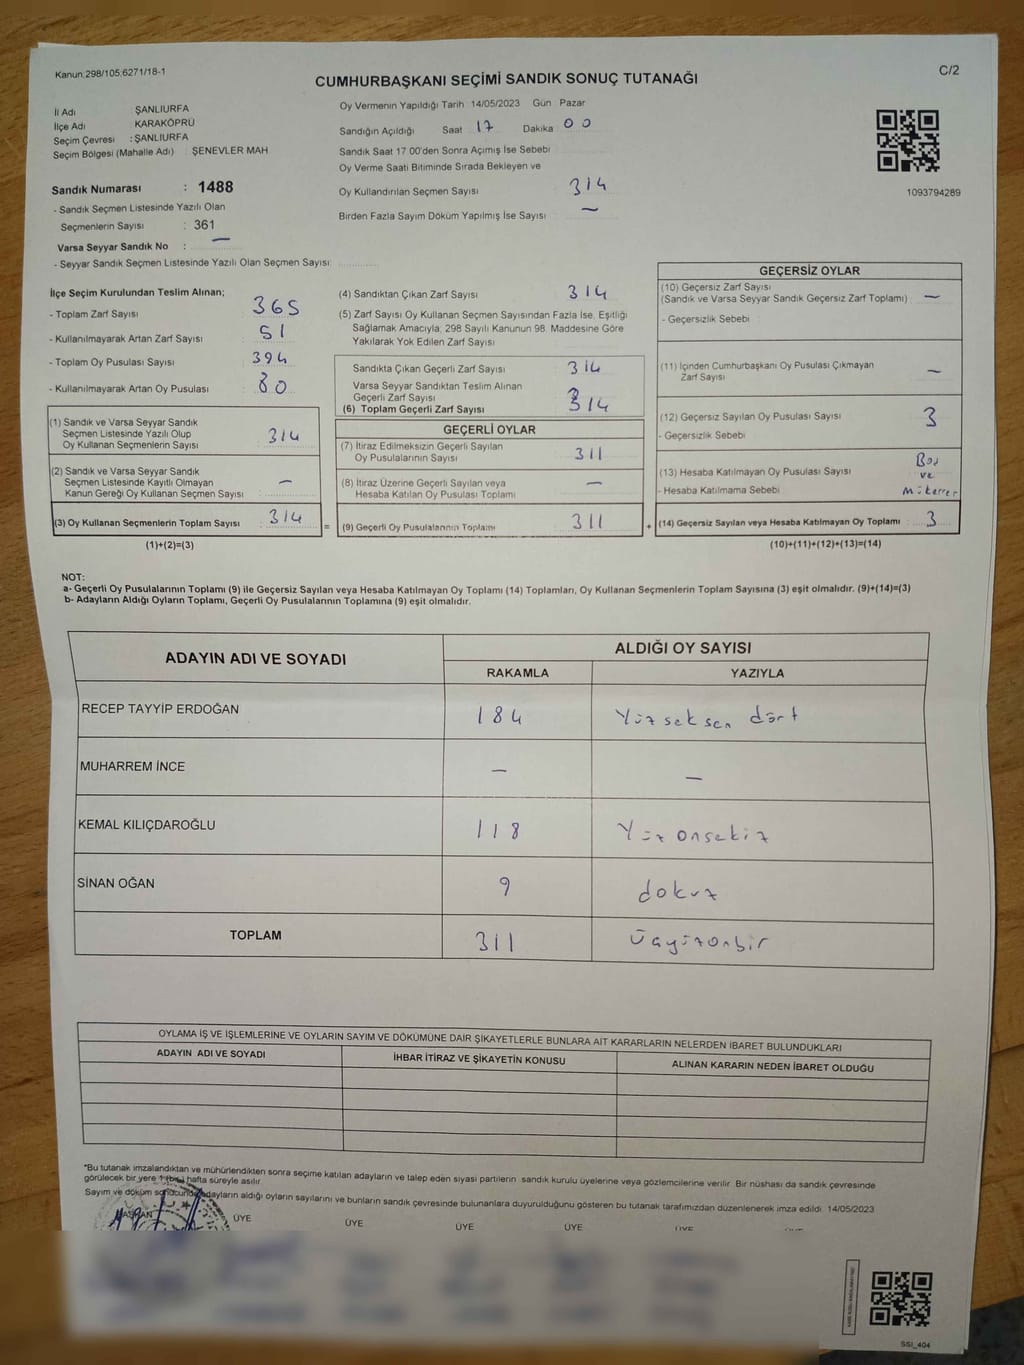 Kanun;298/105;6271/18-1
C/2
CUMHURBAŞKANI SEÇİMİ SANDIK SONUÇ TUTANAĞI
İl Adı : ŞANLIURFA
İlçe Adı : KARAKÖPRÜ
Seçim Çevresi : ŞANLIURFA
Seçim Bölgesi (Mahalle Adı) : ŞENEVLER MAH
Sandık Numarası : 1488
- Sandık Seçmen Listesinde Yazılı Olan
Seçmenlerin Sayısı : 361
Varsa Seyyar Sandık No : —
- Seyyar Sandık Seçmen Listesinde Yazılı Olan Seçmen Sayısı:
Oy Vermenin Yapıldığı Tarih 14/05/2023 Gün Pazar
Sandığın Açıldığı Saat 17 Dakika 00
Sandık Saat 17 00'den Sonra Açımış İse Sebebi
Oy Verme Saati Bitiminde Sırada Bekleyen ve
Oy Kullandırılan Seçmen Sayısı 314
Birden Fazla Sayım Döküm Yapılmış İse Sayısı —
1093794289
İlçe Seçim Kurulundan Teslim Alınan;
- Toplam Zarf Sayısı 365
- Kullanılmayarak Artan Zarf Sayısı 51
- Toplam Oy Pusulası Sayısı 394
- Kullanılmayarak Artan Oy Pusulası 80
(1) Sandık ve Varsa Seyyar Sandık
Seçmen Listesinde Yazılı Olup
Oy Kullanan Seçmenlerin Sayısı 314
(2) Sandık ve Varsa Seyyar Sandık
Seçmen Listesinde Kayıtlı Olmayan
Kanun Gereği Oy Kullanan Seçmen Sayısı —
(3) Oy Kullanan Seçmenlerin Toplam Sayısı 314 =
(1)+(2)=(3)
(4) Sandıktan Çıkan Zarf Sayısı 314
(5) Zarf Sayısı Oy Kullanan Seçmen Sayısından Fazla İse, Eşitliği
Sağlamak Amacıyla; 298 Sayılı Kanunun 98. Maddesine Göre
Yakılarak Yok Edilen Zarf Sayısı
Sandıkta Çıkan Geçerli Zarf Sayısı 314
Varsa Seyyar Sandıktan Teslim Alınan
Geçerli Zarf Sayısı
(6) Toplam Geçerli Zarf Sayısı 314
GEÇERLİ OYLAR
(7) İtiraz Edilmeksizin Geçerli Sayılan
Oy Pusulalarının Sayısı 311
(8) İtiraz Üzerine Geçerli Sayılan veya
Hesaba Katılan Oy Pusulası Toplamı —
(9) Geçerli Oy Pusulalarının Toplamı 311 +
GEÇERSİZ OYLAR
(10) Geçersiz Zarf Sayısı
(Sandık ve Varsa Seyyar Sandık Geçersiz Zarf Toplamı) —
- Geçersizlik Sebebi
(11) İçinden Cumhurbaşkanı Oy Pusulası Çıkmayan
Zarf Sayısı —
(12) Geçersiz Sayılan Oy Pusulası Sayısı 3
- Geçersizlik Sebebi
(13) Hesaba Katılmayan Oy Pusulası Sayısı
- Hesaba Katılmama Sebebi
ve
(14) Geçersiz Sayılan veya Hesaba Katılmayan Oy Toplamı 3
(10)+(11)+(12)+(13)=(14)
NOT:
a- Geçerli Oy Pusulalarının Toplamı (9) ile Geçersiz Sayılan veya Hesaba Katılmayan Oy Toplamı (14) Toplamları, Oy Kullanan Seçmenlerin Toplam Sayısına (3) eşit olmalıdır. (9)+(14)=(3)
b- Adayların Aldığı Oyların Toplamı, Geçerli Oy Pusulalarının Toplamına (9) eşit olmalıdır.
ADAYIN ADI VE SOYADI
ALDIĞI OY SAYISI
RAKAMLA YAZIYLA
RECEP TAYYİP ERDOĞAN 184 Yüzseksen dört
MUHARREM İNCE — —
KEMAL KILIÇDAROĞLU 118 Yüz onsekiz
SİNAN OĞAN 9 dokuz
TOPLAM 311 üçyüzonbir
OYLAMA İŞ VE İŞLEMLERİNE VE OYLARIN SAYIM VE DÖKÜMÜNE DAİR ŞİKAYETLERLE BUNLARA AİT KARARLARIN NELERDEN İBARET BULUNDUKLARI
ADAYIN ADI VE SOYADI
İHBAR İTİRAZ VE ŞİKAYETİN KONUSU
ALINAN KARARIN NEDEN İBARET OLDUĞU
*Bu tutanak imzalandıktan ve mühürlendikten sonra seçime katılan adayların ve talep eden siyasi partilerin sandık kurulu üyelerine veya gözlemcilerine verilir. Bir nüshası da sandık çevresinde
görülecek bir yere 1 (bir) hafta süreyle asılır.
Sayım ve döküm sonucunda adayların aldığı oyların sayılarını ve bunların sandık çevresinde bulunanlara duyurulduğunu gösteren bu tutanak tarafımızdan düzenlenerek imza edildi. 14/05/2023
BAŞKAN ÜYE ÜYE ÜYE ÜYE ÜYE ÜYE
SSI_404